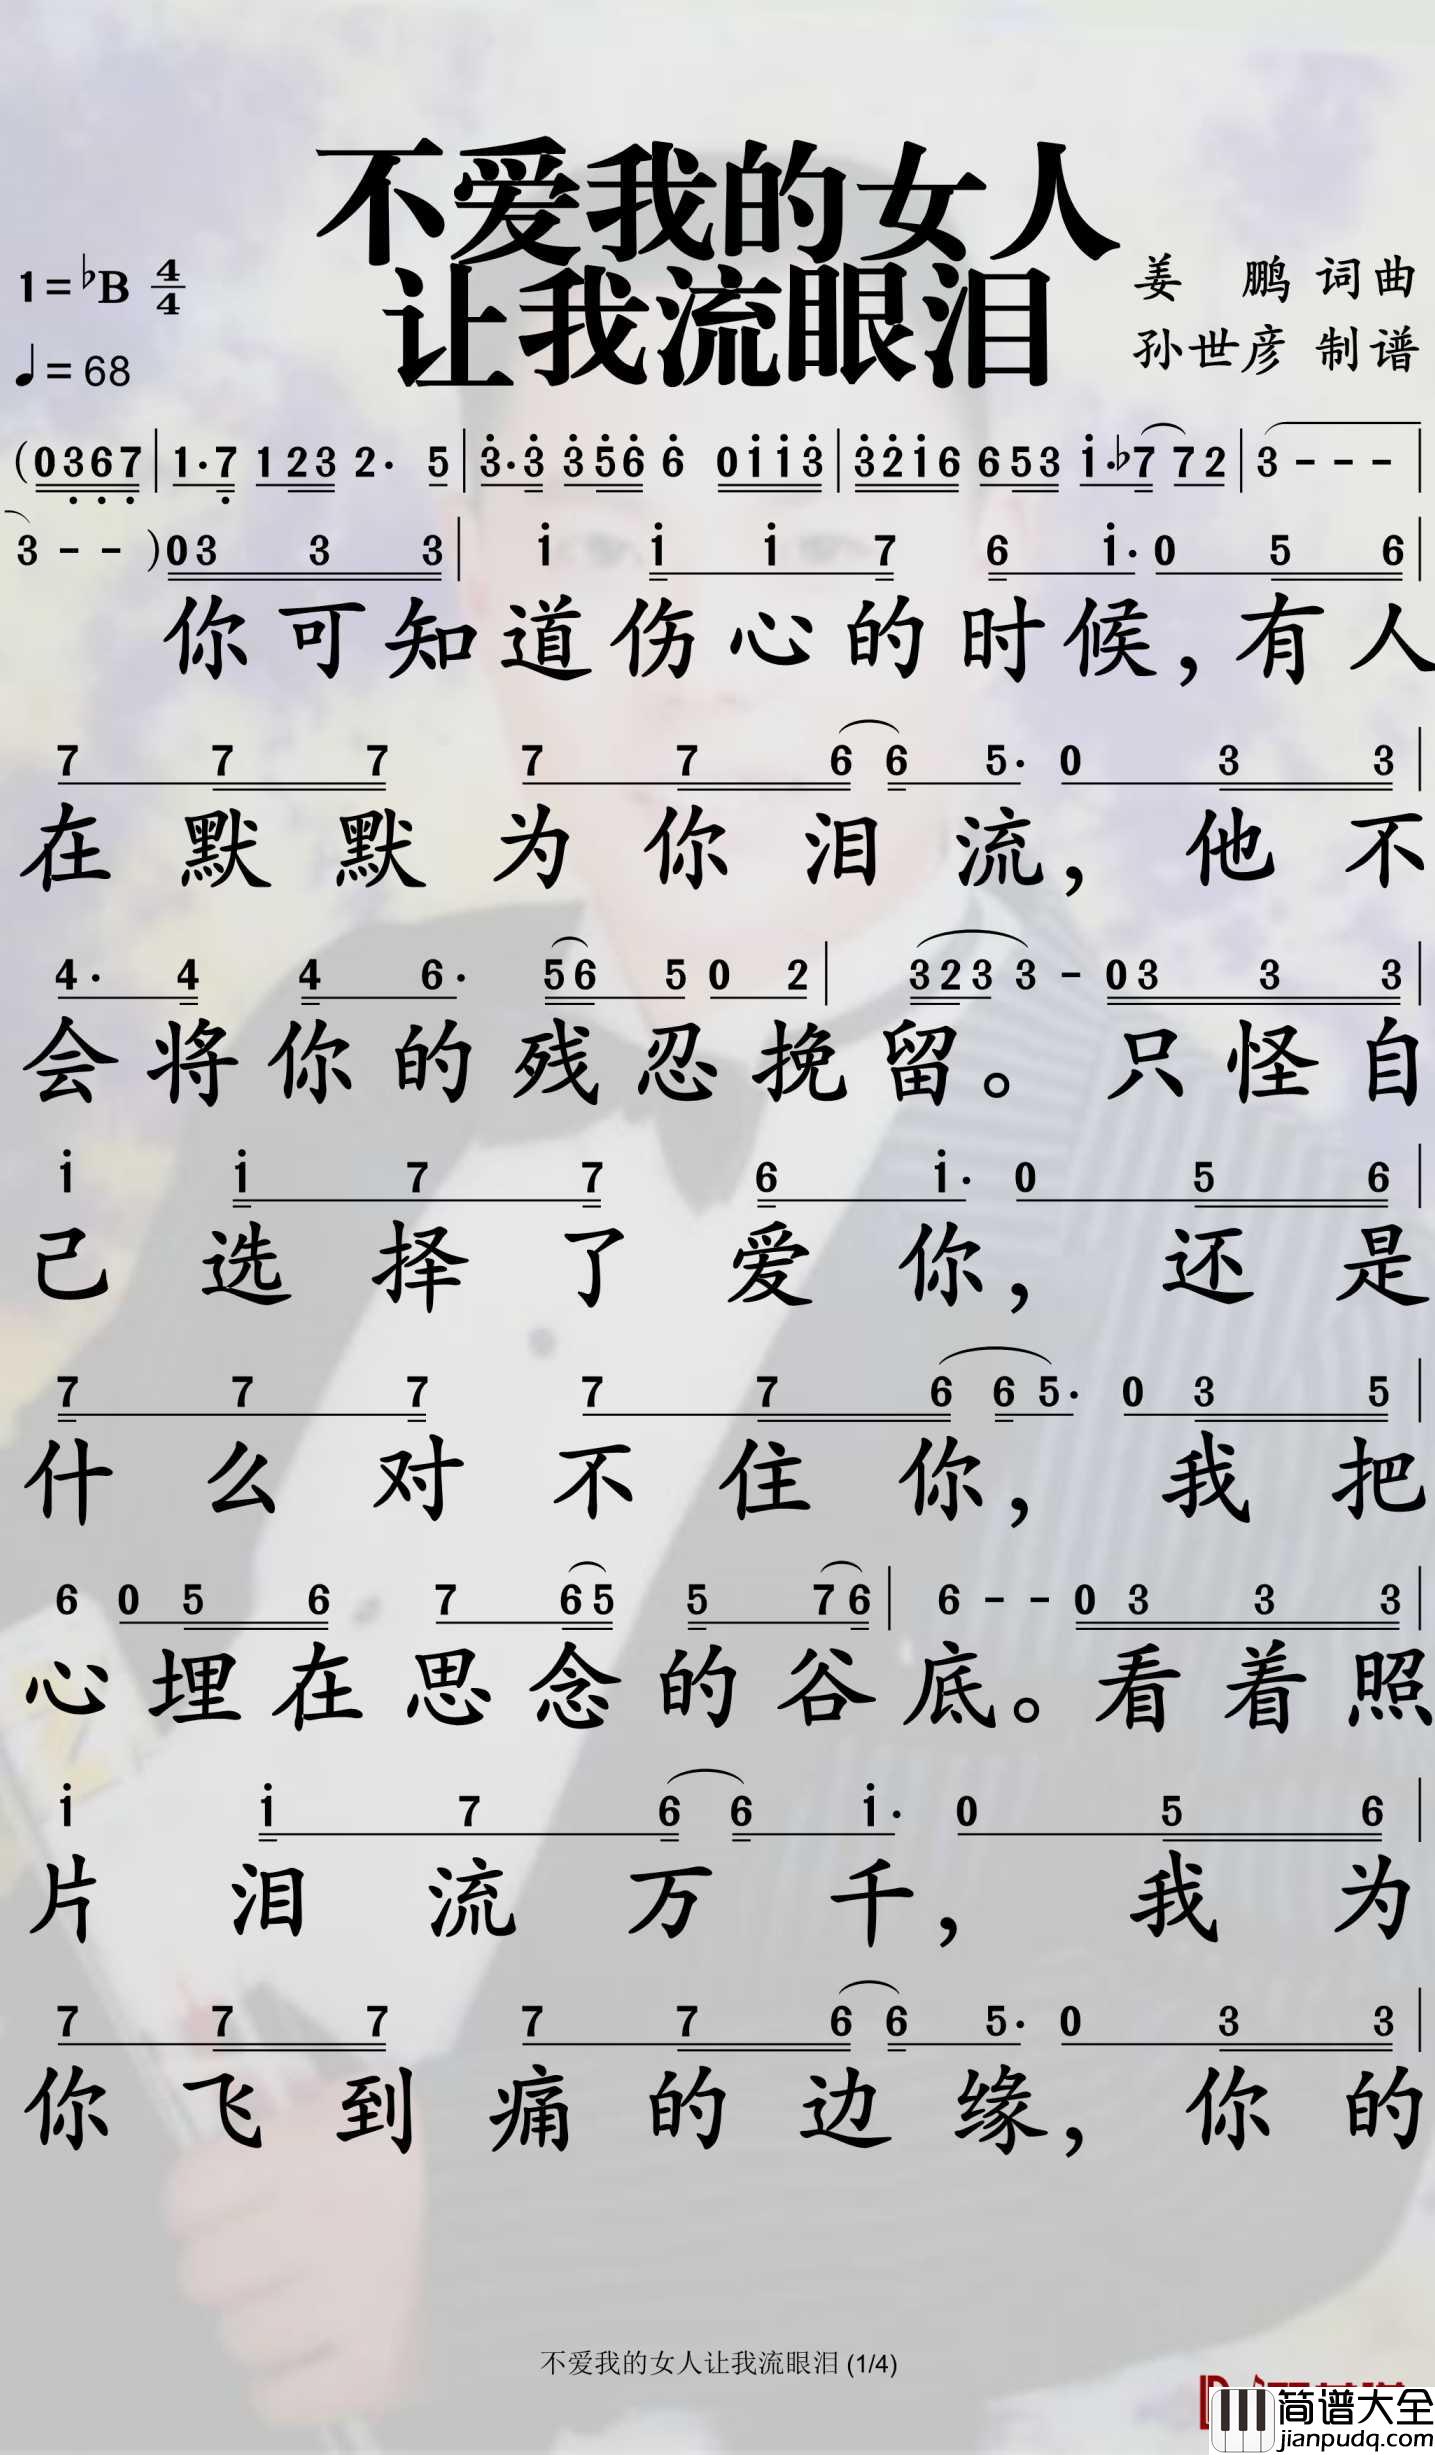 不爱我的女人
让我流眼泪
1=♭B 4/4
♩=68
姜 鹏 词曲
孙世彦 制谱
(0367|1·7 123 2· 5|3·3 356 6 0113|3216 653 1·♭7 72|3---|
3--)033 3|1 1 1 7 6 1·0 5 6|
你可知道伤心的时候，有人
7 7 7 7 7 6 6 5·0 3 3|
在默默为你泪流，他不
4·4 4 6·56 5 0 2|323 3-03 3 3|
会将你的残忍挽留。只怪自
1 1 7 7 6 1·0 5 6|
己选择了爱你，还是
7 7 7 7 7 6 65·0 3 5|
什么对不住你，我把
6 0 5 6 7 65 5 76|6--0 3 3 3|
心埋在思念的谷底。看着照
1 1 7 6 6 1·0 5 6|
片泪流万千，我为
7 7 7 7 7 6 6 5·0 3 3|
你飞到痛的边缘，你的
不爱我的女人让我流眼泪 (1/4)
简谱大全
jianpudq.com